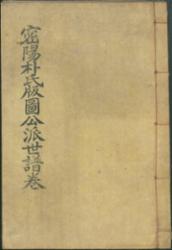 密陽朴氏版圖公派世譜卷